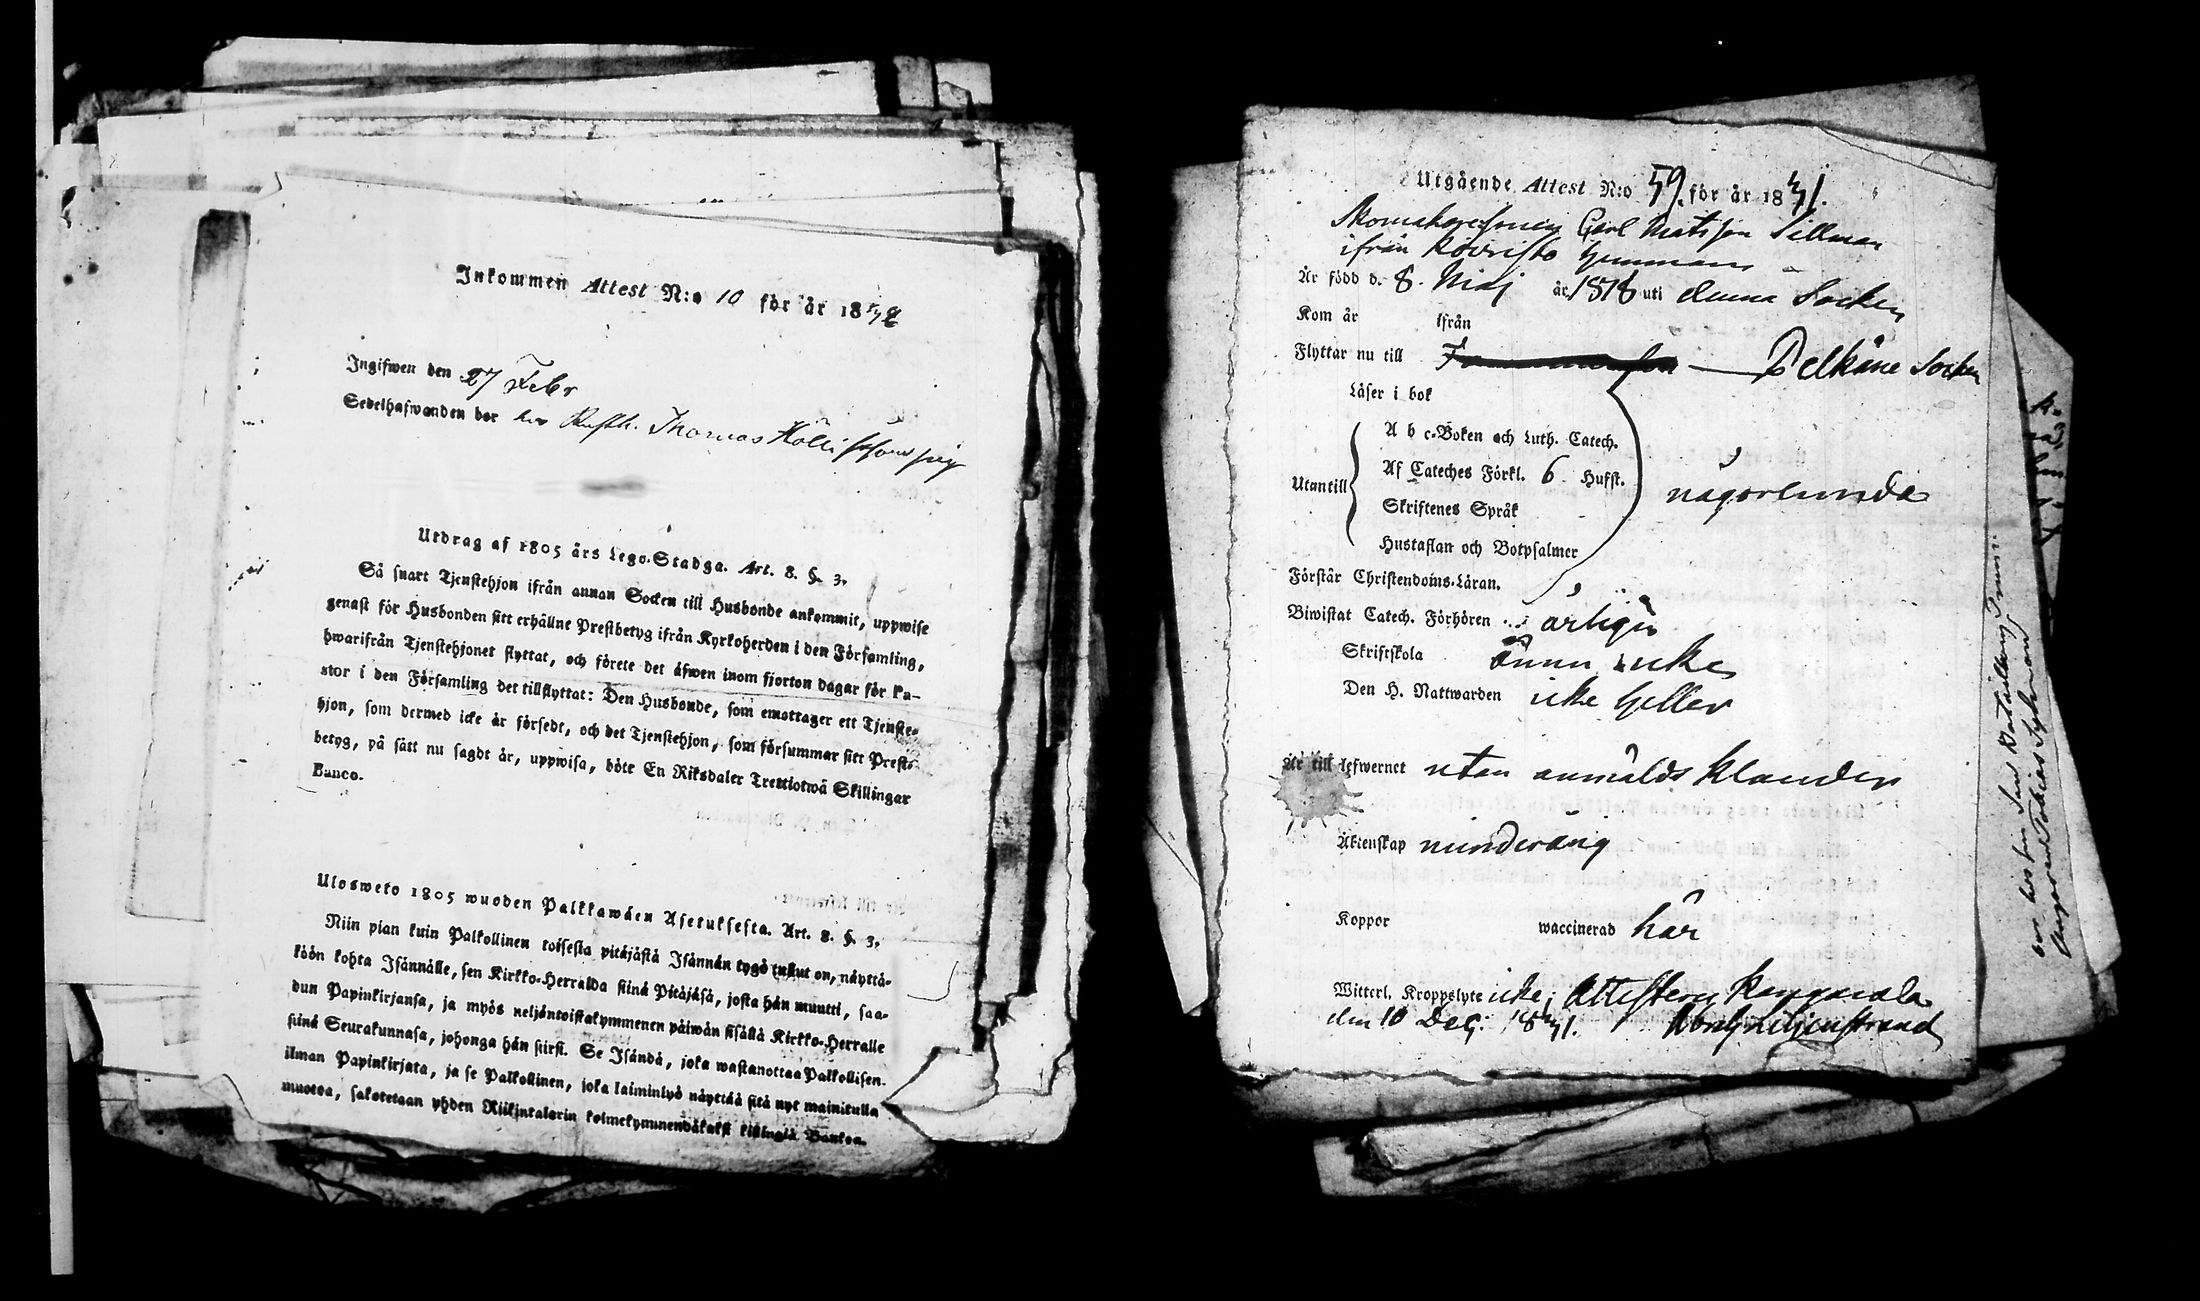 Inkommen Attest N:o 10 för år 18
Ingifwen den 27 Febr
Sedelhafwanden bor hos Rusth. Thomas
Utdrag af 1805 års Lego-Stadga. Art. 8. §. 3.
Så snart Tjenstehjon ifrån annan Socken till Husbonde ankommit, uppwise
genast för Husbonden sitt erhållne Prestbetyg ifrån Kyrkoherden i den Församling,
hwarifrån Tjenstehjonet flyttat, och förete det äfwen inom fjorton dagar för Pa-
stor i den Församling det tillflyttat: Den Husbonde, som emottager ett Tjenste-
hjon, som dermed icke är försedt, och det Tjenstehjon, som försummar sitt Prest-
betyg, på sätt nu sagdt är, uppwisa, böte En Riksdaler Trettiotwå Skillingar
Banco.
Ulosweto 1805 wuoden Palkkawäen Asetuksesta. Art. 8. §. 3.
Niin pian kuin Palkollinen toisesta pitäjästä Isännän tygö tullut on, näyttä-
köön kohta Isännälle, sen Kirkko-Herralda siinä Pitäjäsä, josta hän muutti, saa-
dun Papinkirjansa, ja myös neljäntoistakymmenen päiwän sisällä Kirkko-Herralle
siinä Seurakunnasa, johonga hän siirsi. Se Isändä, joka wastanottaa Palkollisen
ilman Papinkirjata, ja se Palkollinen, joka laiminlyö näyttää sitä nyt mainitulla
muotoa, sakotetaan yhden Riikintalarin kolmekymmendäkaksi killingiä Bankoa.
Utgående Attest N:o 59. för år 18
Carl Matsson Sillman
ifrån Koivisto hemman
År född d. 8. Maj år 1818 uti denna Socken
Kom år ifrån
Flyttar nu till Pelkäne Socken
Läser i bok
A b c-Boken och Luth. Catech.
Utantill Af Cateches Förkl. 6 Hufst. någorlunda
Skriftenes Språk
Hustaflan och Botpsalmer
Förstår Christendoms-Läran.
Biwistat Catech. Förhören årligen
Skriftskola ännu icke
Den H. Nattwarden icke heller
Är till lefwernet utan anmäldt klander
Äktenskap minderårig
Koppor waccinerad här
Witterl. Kroppslyte icke; Attesterar Kangasala
den 10 Dec: 18